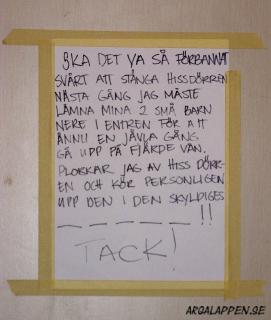 SKA DET VA SÅ FÖRBANNAT
SVÅRT ATT STÄNGA HISSDÖRREN
NÄSTA GÅNG JAG MÅSTE
LÄMNA MINA 2 SMÅ BARN
NERE I ENTREN FÖR ATT
ÄNNU EN JÄVLA GÅNG
GÅ UPP PÅ FJÄRDE VÅN.
PLOCKAR JAG AV HISS DÖRR-
EN OCH KÖR PERSONLIGEN
UPP DEN I DEN SKYLDIGES
_ _ _ _ _ _ _ !!
TACK!
ARGALAPPEN.SE